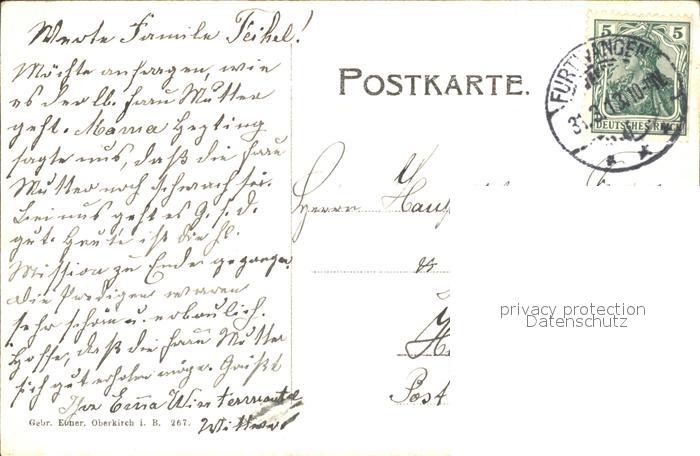 Werte Familie Teihel!
Möchte anfragen, wie
es der lb. Frau Mutter
geht. Mama Hepting
sagte uns, daß die Frau
Mutter noch schwach sei.
Bei uns geht es G. s. d.
gut. Heute ist die hl.
Mission zu Ende gegangen.
Die Predigen waren
sehr schön u. erbaulich.
Hoffe, daß die Frau Mutter
sich gut erholen möge. Grüßt
Ihre Emma Wintermantel
Witwe
Gebr. Ebner, Oberkirch i. B. 267.
POSTKARTE.
5 5
DEUTSCHES REICH
FURTWANGEN
31.3.13. 10-11V.
Herrn
Post
privacy protection
Datenschutz